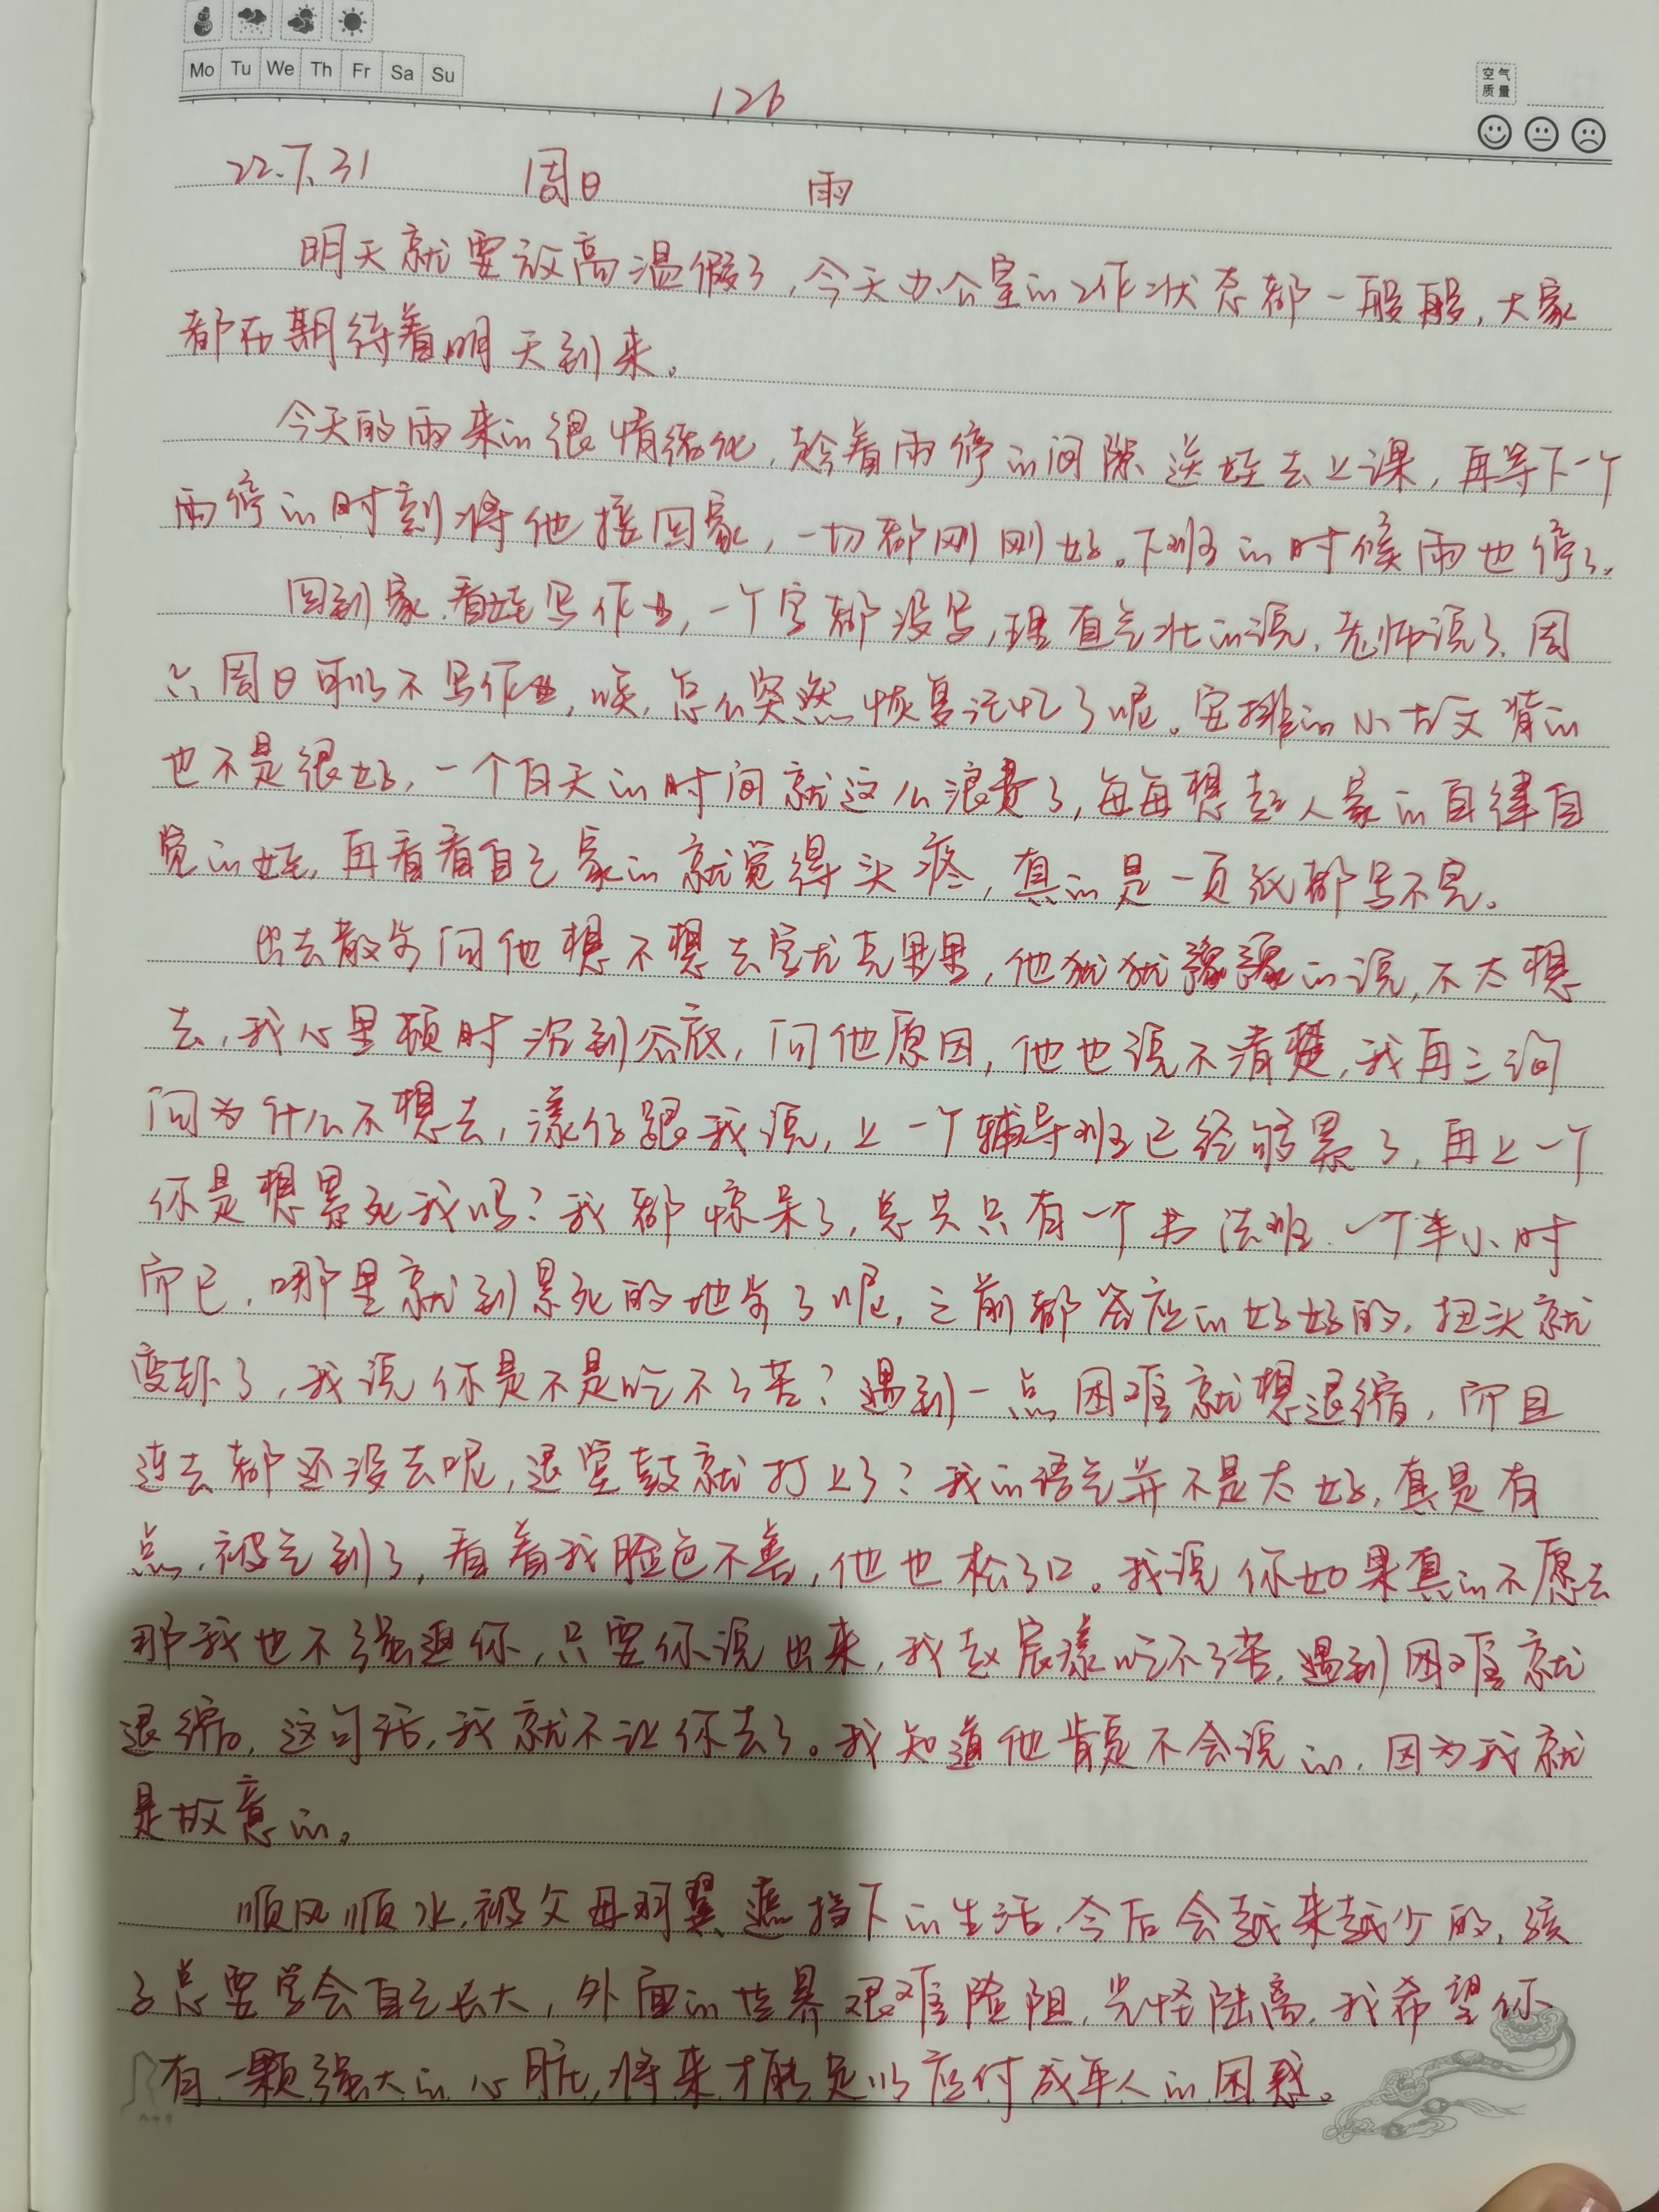 Mo Tu We Th Fr Sa Su
空气
质量
126
22.7.31 周日 雨
明天就要放高温假了,今天办公室的工作状态都一般般,大家
都在期待着明天到来。
今天的雨来的很情绪化,趁着雨停的间隙送娃去上课,再等下一个
雨停的时刻将他接回家,一切都刚刚好。下班的时候雨也停了。
回到家,看娃写作业,一个字都没写,理直气壮的说,老师说了,周
六周日可以不写作业,唉,怎么突然恢复记忆了呢。安排的小古文背的
也不是很好,一个白天的时间就这么浪费了,每每想起人家的自律自
觉的娃,再看看自己家的就觉得头疼,真的是一页纸都写不完。
出去散步问他想不想去学尤克里里,他犹犹豫豫的说,不太想
去,我心里顿时沉到谷底,问他原因,他也说不清楚,我再三询
问为什么不想去,漾仔跟我说,上一个辅导班已经够累了,再上一个
你是想累死我吗?我都惊呆了,总共只有一个书法班,一个半小时
而已,哪里就到累死的地步了呢,之前都答应的好好的,扭头就
变卦了,我说你是不是吃不了苦?遇到一点困难就想退缩,而且
连去都还没去呢,退堂鼓就打上了?我的语气并不是太好,真是有
点被气到了,看着我脸色不善,他也松了口。我说你如果真的不愿去
那我也不强迫你,只要你说出来,我赵宸漾吃不了苦,遇到困难就
退缩。这句话,我就不让你去了。我知道他肯定不会说的,因为我就
是故意的。
顺风顺水,被父母羽翼遮挡下的生活,今后会越来越少的,孩
子总要学会自己长大,外面的世界艰难险阻,光怪陆离,我希望你
有一颗强大的心脏,将来才能足以应付成年人的困惑。